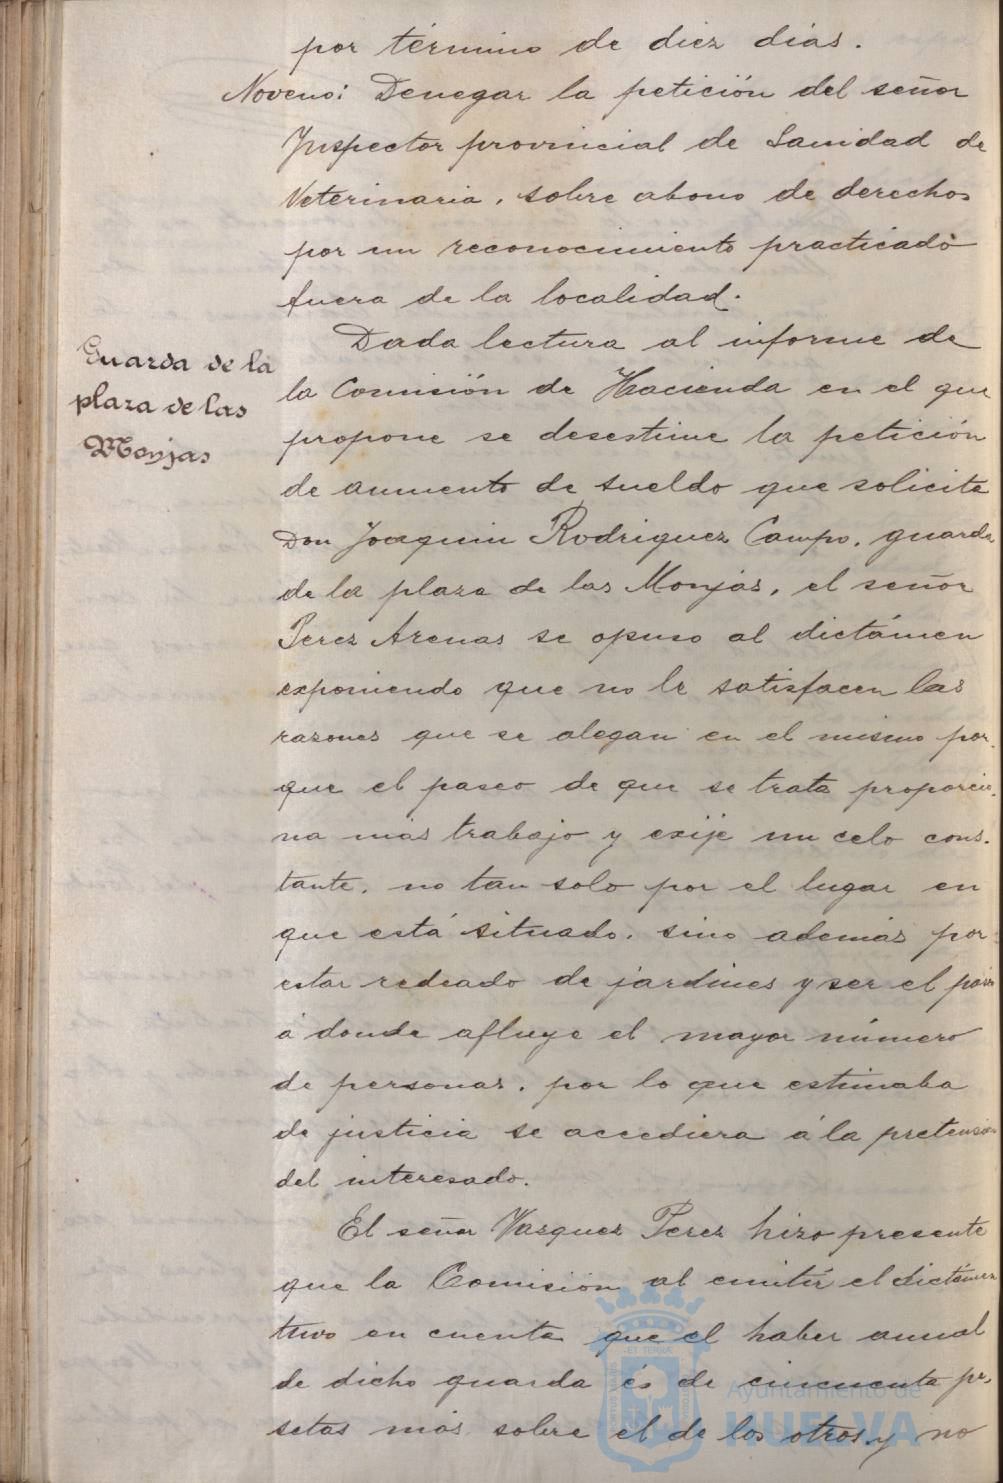 por término de diez dias.
Noveno: Denegar la petición del señor
Inspector provincial de Sanidad de
Veterinaria, sobre abono de derechos
por un reconocimiento practicado
fuera de la localidad.
Dada lectura al informe de
Guarda de la
plaza de las
Monjas
la Comisión de Hacienda en el que
propone se desestime la petición
de aumento de sueldo que solicita
Don Joaquin Rodriguez Campo, guarda
de la plaza de las Monjas, el señor
Perez Arenas se opuso al dictámen
exponiendo que no le satisfacen las
razones que se alegan en el mismo por-
que el paseo de que se trata proporcio-
na más trabajo y exije un celo cons-
tante, no tan solo por el lugar en
que está situado, sino además por
estar rodeado de jardines y ser el paseo
á donde afluye el mayor número
de personas, por lo que estimaba
de justicia se accediera á la pretensión
del interesado.
El señor Vazquez Perez hizo presente
que la Comisión al emitir el dictámen
tuvo en cuenta que el haber anual
de dicho guarda és de cincuenta pe-
setas más sobre el de los otros y no
ET TERRÆ
Ayuntamiento de
HUELVA